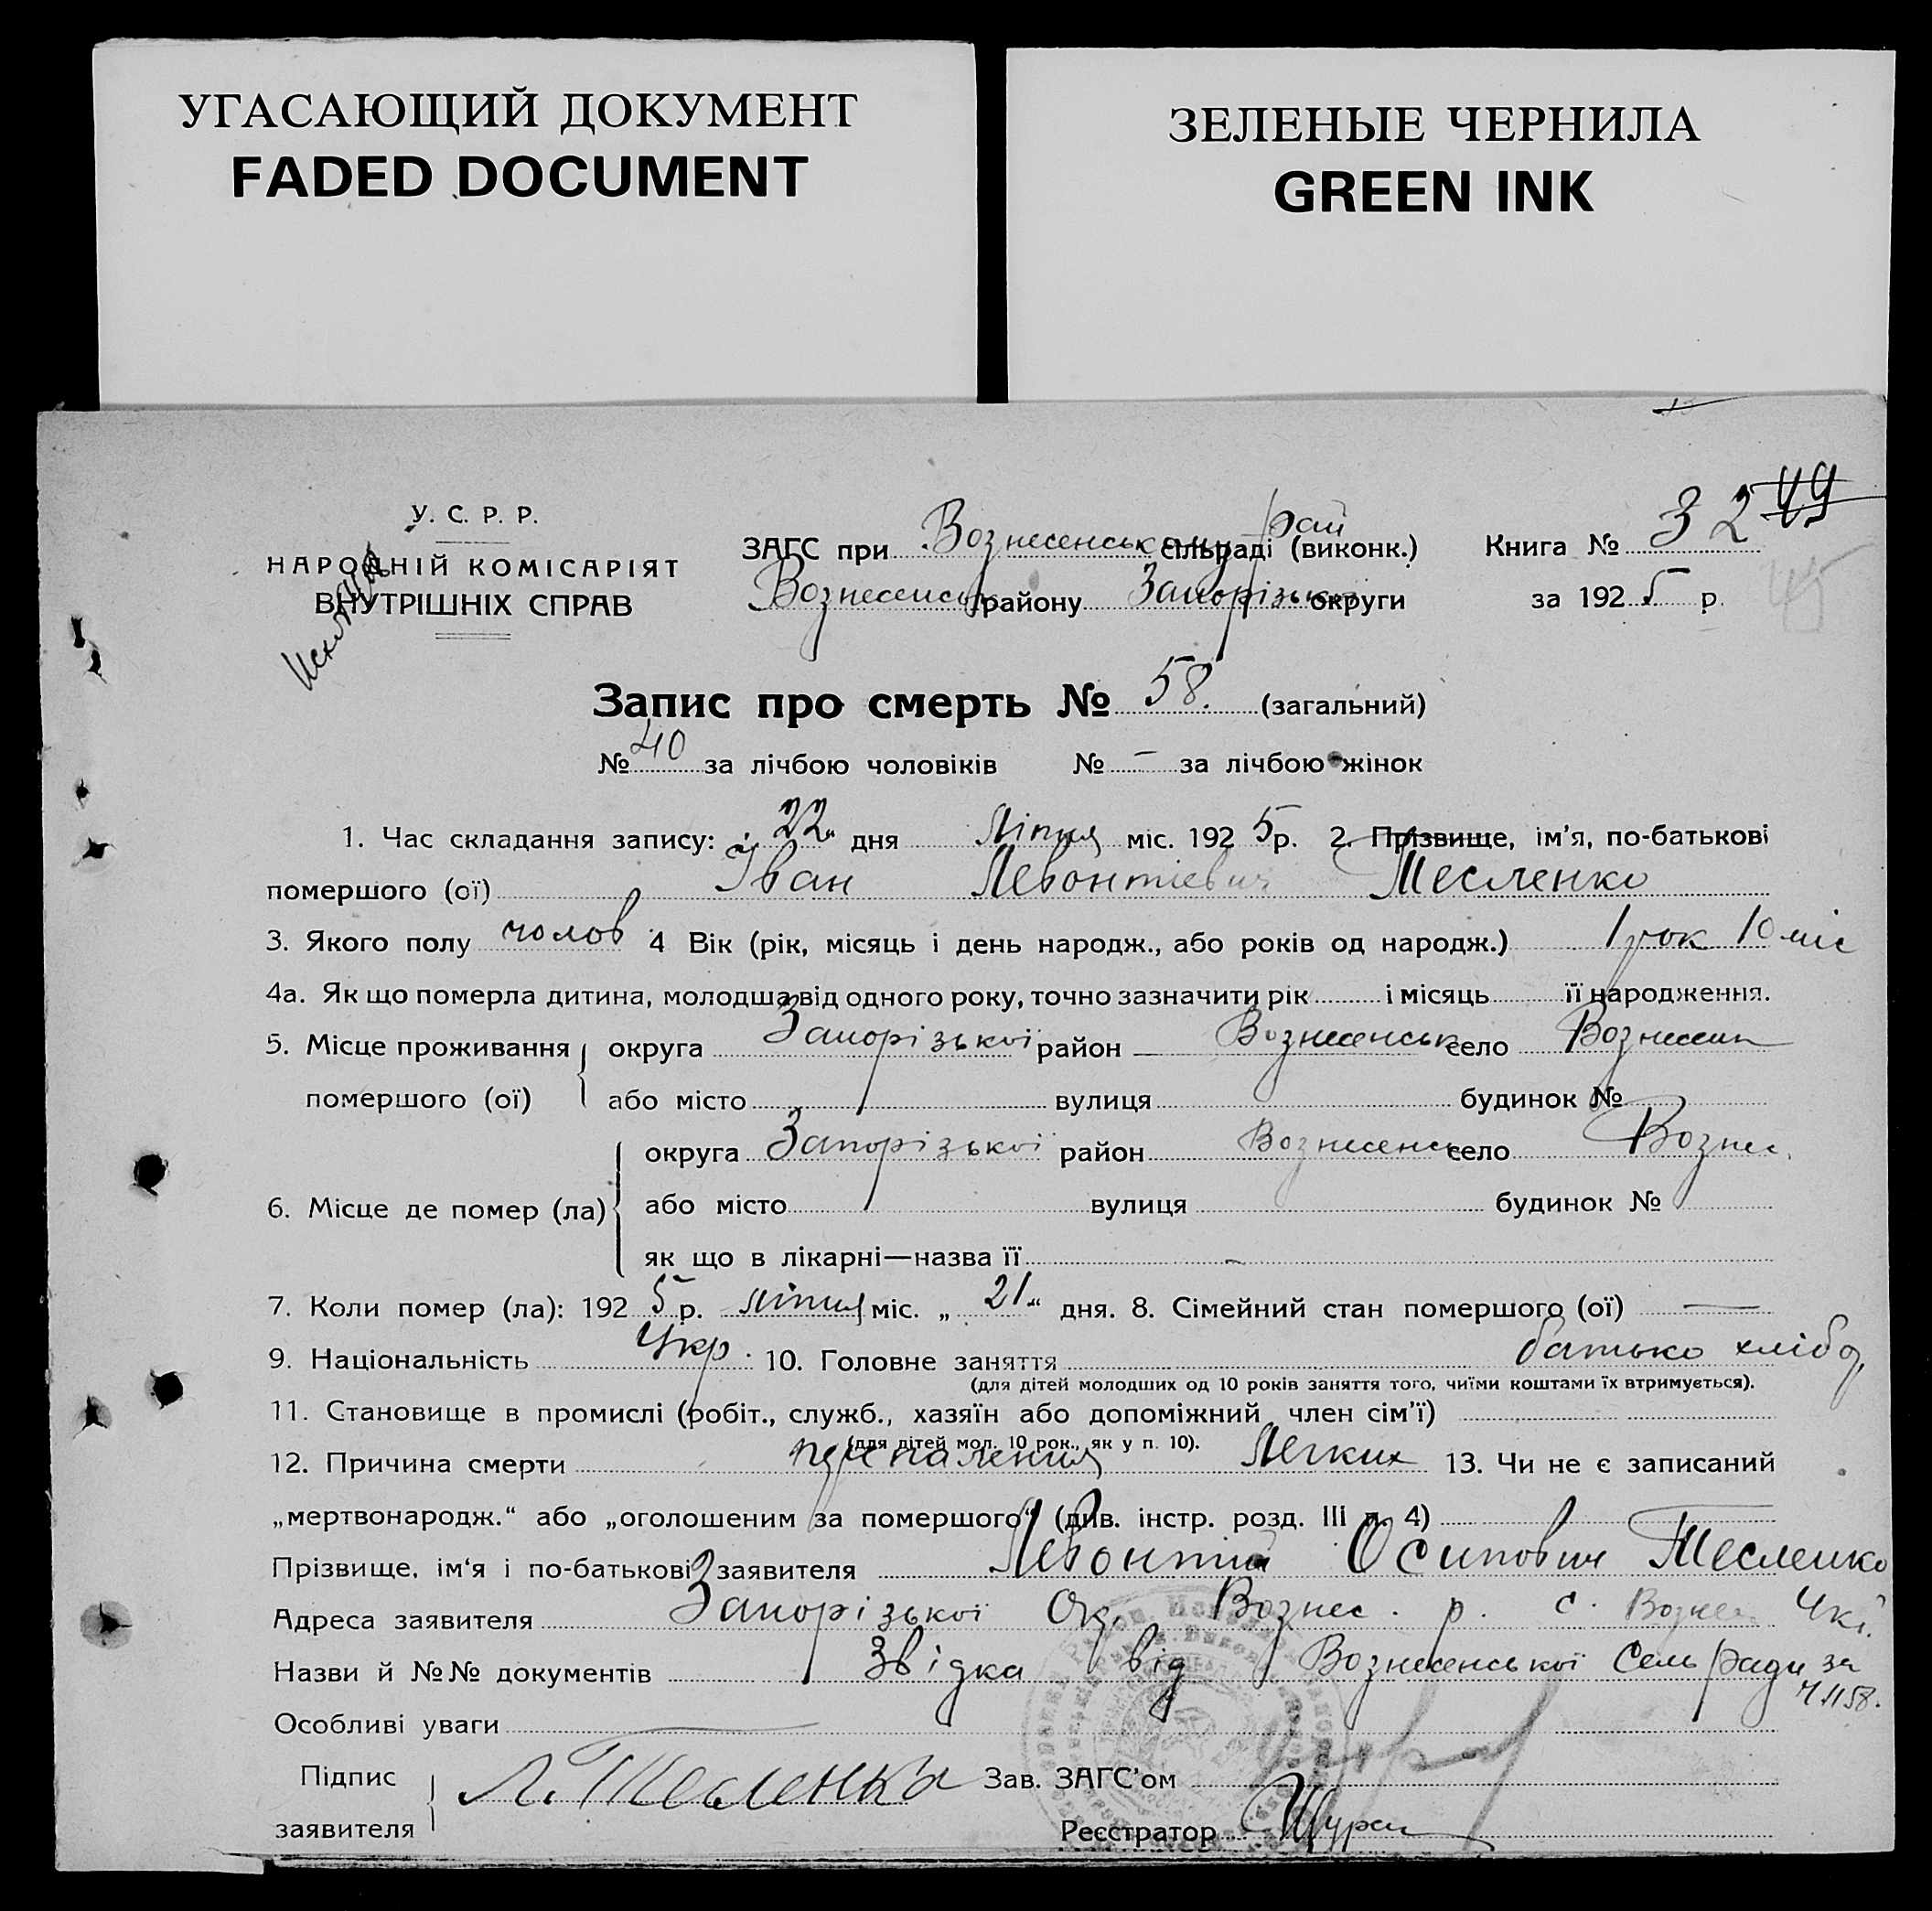 УГАСАЮЩИЙ ДОКУМЕНТ
FADED DOCUMENT
ЗЕЛЕНЫЕ ЧЕРНИЛА
GREEN INK
У. С. Р. Р.
НАРОДНІЙ КОМІСАРІЯТ
ВНУТРІШНІХ СПРАВ
ЗАГС при Вознесенському рай сільраді (виконк.) Книга № 32 49
Вознесенськ району Запорізької округи за 1925 р.
Запис про смерть № 58. (загальний)
№ 40 за лічбою чоловіків № – за лічбою жінок
1. Час складання запису: „22“ дня Ліпня міс. 1925 р. 2. Прізвище, ім'я, по-батькові
помершого (ої) Іван Левонтіевич Тесленко
3. Якого полу чолов 4 Вік (рік, місяць і день народж., або років од народж.) 1 рок 10 міс
4а. Як що померла дитина, молодша від одного року, точно зазначити рік і місяць її народження.
5. Місце проживання округа Запорізької район Вознесенськ село Вознесен
помершого (ої) або місто вулиця будинок №
округа Запорізької район Вознесенсь село Вознес.
6. Місце де помер (ла) або місто вулиця будинок №
як що в лікарні—назва її –
7. Коли помер (ла): 1925 р. ліпня міс. „21“ дня. 8. Сімейний стан помершого (ої) —
9. Національність Укр. 10. Головне заняття батько хлібо
(для дітей молодших од 10 років заняття того, чиїми коштами їх втримується).
11. Становище в промислі (робіт., служб., хазяїн або допоміжний член сім'ї)
(для дітей мол. 10 рок., як у п. 10).
12. Причина смерти Легких 13. Чи не є записаний
„мертвонародж.“ або „оголошеним за помершого“ (див. інстр. розд. III п. 4)
Прізвище, ім'я і по-батькові заявителя Левонтій Осипович Тесленко
Адреса заявителя Запорізької Ок. Вознес. р. с. Вознес
Назви й №№ документів Звідка від Вознесенської Сельради за
Ч 1158.
Особливі уваги —
Підпис
заявителя Л. Тесленко
Зав. ЗАГС'ом
Реєстратор